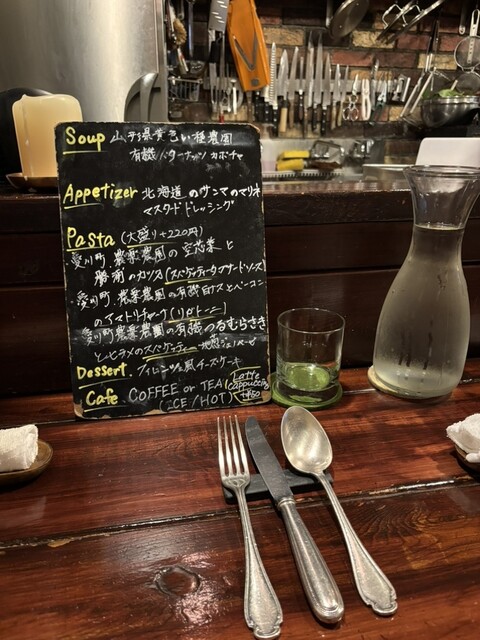 Soup 山形県黄色い種農園
有機バターナッツ カボチャ
Appetizer 北海道のサンマのマリネ
マスタードドレッシング
Pasta (大盛り+220円)
愛川町 農楽農園の空芯菜と
勝浦のカツオ(スパゲティータプナードソース)
・愛川町 農楽農園の有機白ナスとベーコン
のアマトリチャーナ(リガトーニ)
愛川町農楽農園の有機つるむらさき
とヒラメのスパゲッティー
Dessert フィレンツェ風チーズケーキ
Cafe COFFEE or TEA
(ICE/HOT)
Latte
Cappuccino
+¥50